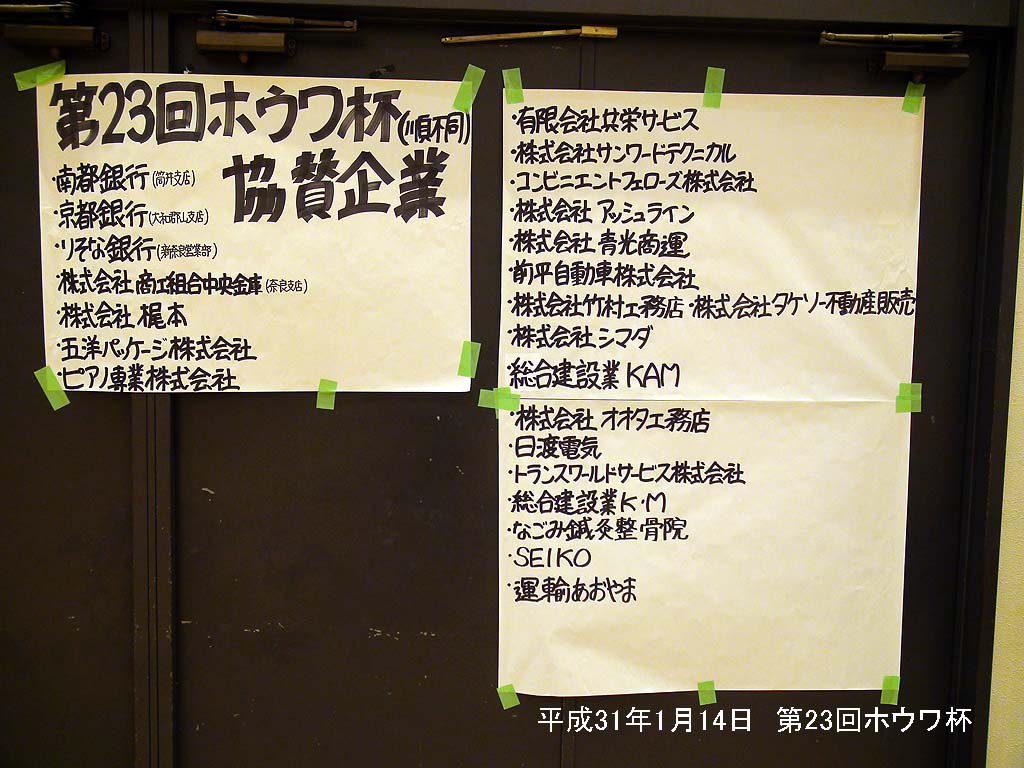 第23回ホウワ杯(順不同)
協賛企業
・南都銀行(筒井支店)
・京都銀行(大和郡山支店)
・りそな銀行(新奈良営業部)
・株式会社 商工組合中央金庫(奈良支店)
・株式会社 梶本
・五洋パッケージ株式会社
・ピアノ専業株式会社
・有限会社共栄サービス
・株式会社サンワードテクニカル
・コンビニエントフェローズ株式会社
・株式会社 アッシュライン
・株式会社 青光商運
・前平自動車株式会社
・株式会社竹村工務店・株式会社タケソー不動産販売
・株式会社 シマダ
・総合建設業 KAM
・株式会社 オオタ工務店
・日渡電気
・トランスワールドサービス株式会社
・総合建設業K・M
・なごみ鍼灸整骨院
・SEIKO
・運輸あおやま
平成31年1月14日 第23回ホウワ杯